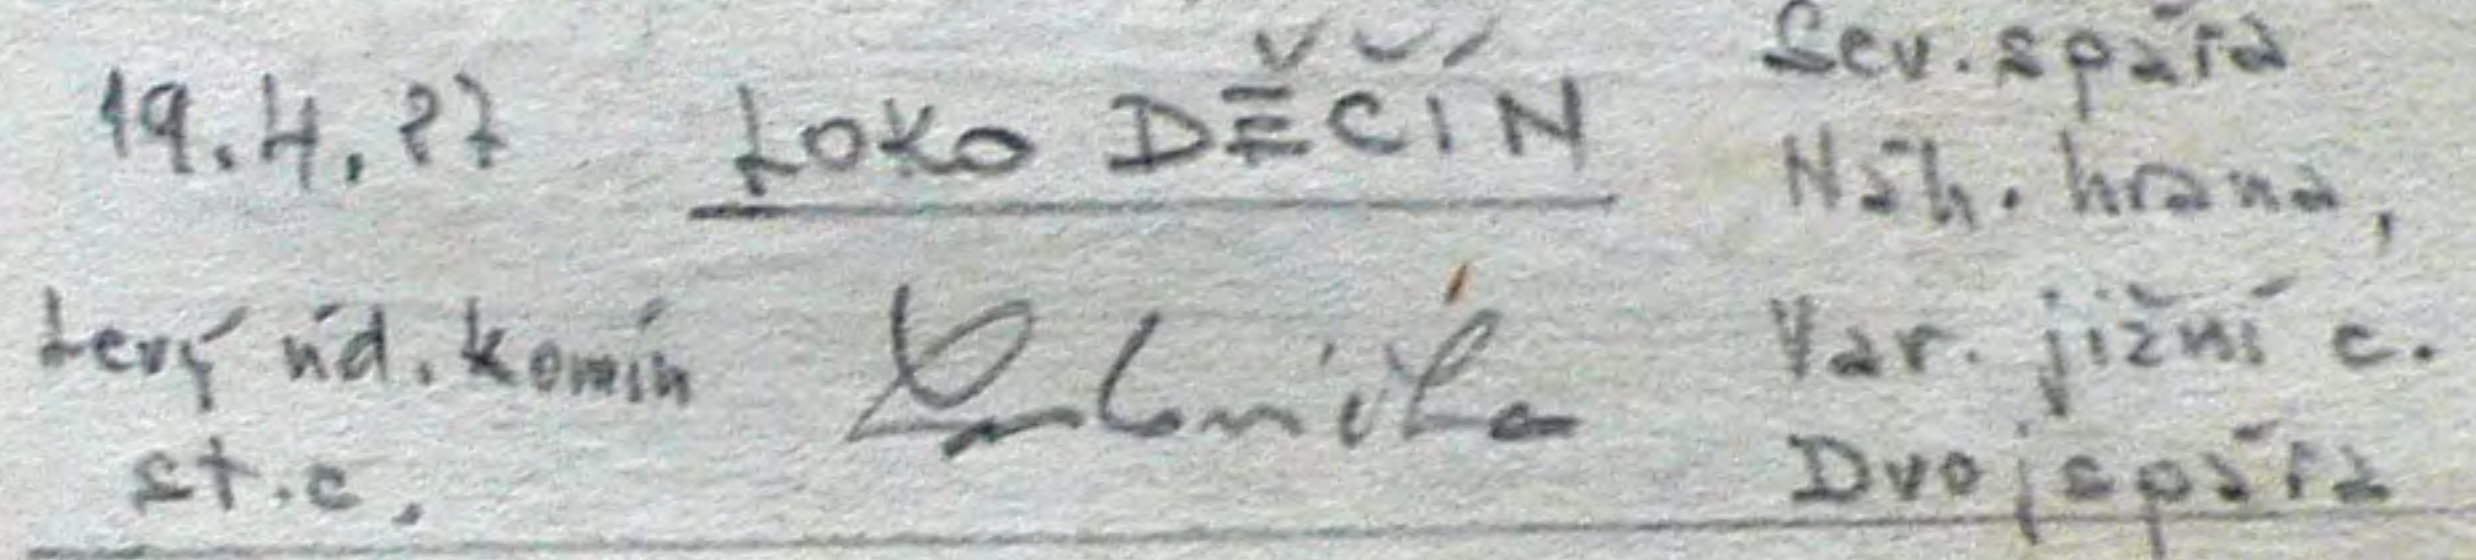 19.4.87 LOKO DĚČÍN
Levý úd. komín
st.c.
Sev. spára
Náh. hrana,
Var. jižní c.
Dvojspára